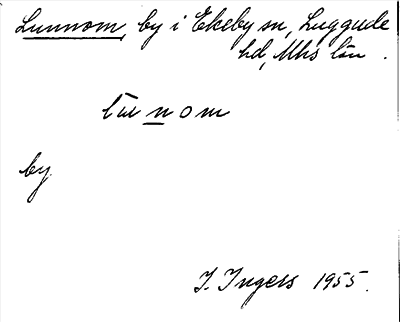 Lunnom, by i Ekeby sn, Luggude
hd, Mhs län.
lunom
by
I. Ingers 1955.